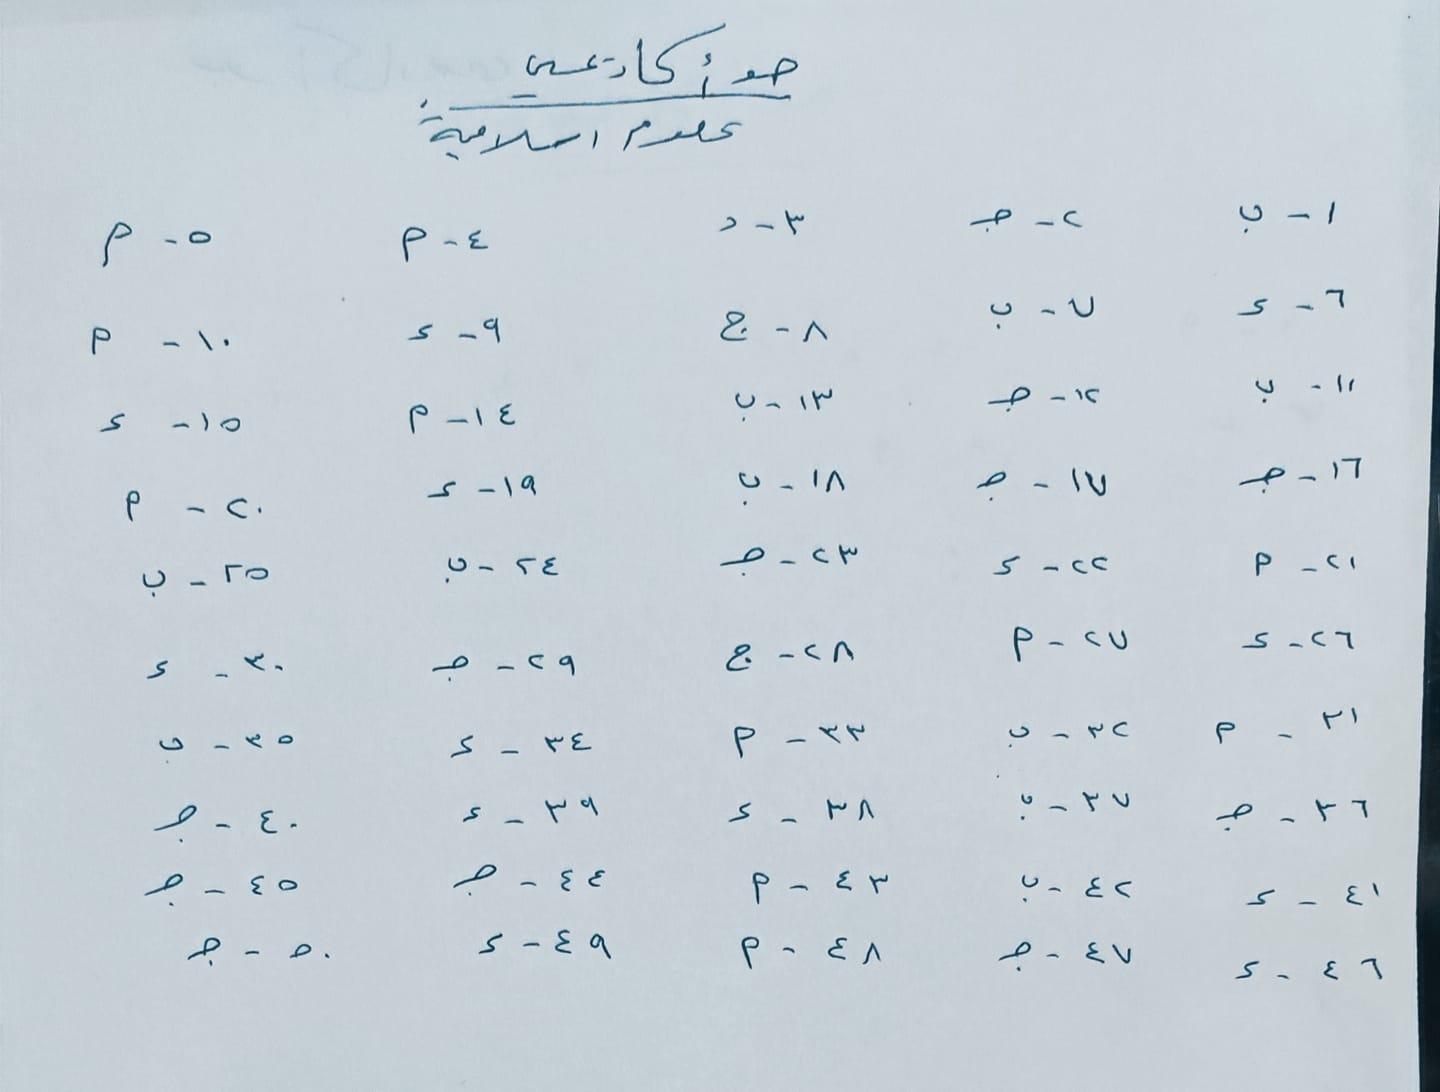 علوم اسلامية
١ - ب ٢ - جـ ٣ - د ٤ - م ٥ - م
٦ - د ٧ - ب ٨ - ج ٩ - د ١٠ - م
١١ - ب ١٢ - جـ ١٣ - ب ١٤ - م ١٥ - د
١٦ - جـ ١٧ - جـ ١٨ - ب ١٩ - د ٢٠ - م
٢١ - م ٢٢ - د ٢٣ - جـ ٢٤ - ب ٢٥ - ب
٢٦ - د ٢٧ - م ٢٨ - ج ٢٩ - جـ ٣٠ - د
٣١ - م ٣٢ - ب ٣٣ - م ٣٤ - د ٣٥ - ب
٣٦ - جـ ٣٧ - ب ٣٨ - د ٣٩ - د ٤٠ - جـ
٤١ - د ٤٢ - ب ٤٣ - م ٤٤ - جـ ٤٥ - جـ
٤٦ - د ٤٧ - جـ ٤٨ - م ٤٩ - د ٥٠ - جـ